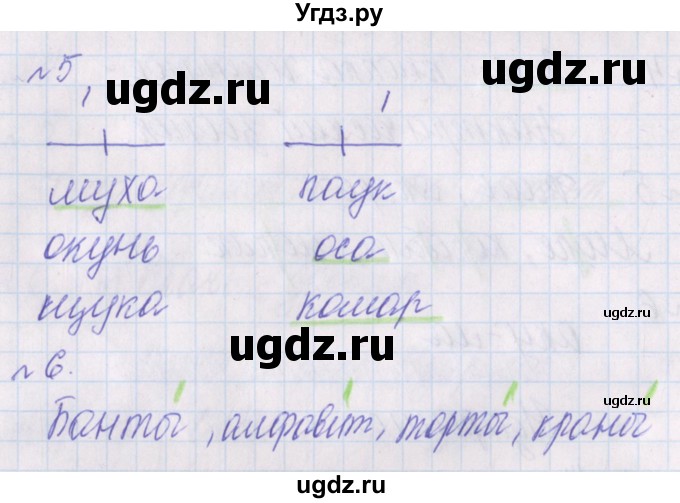 Угдз.ру
№5
ugdz.ru ugdz.ru
муха паук
окунь оса
щука комар
ugdz.ru ugdz.ru
№6.
Банты, алфавит, торты, краны
ugdz.ru ugdz.ru